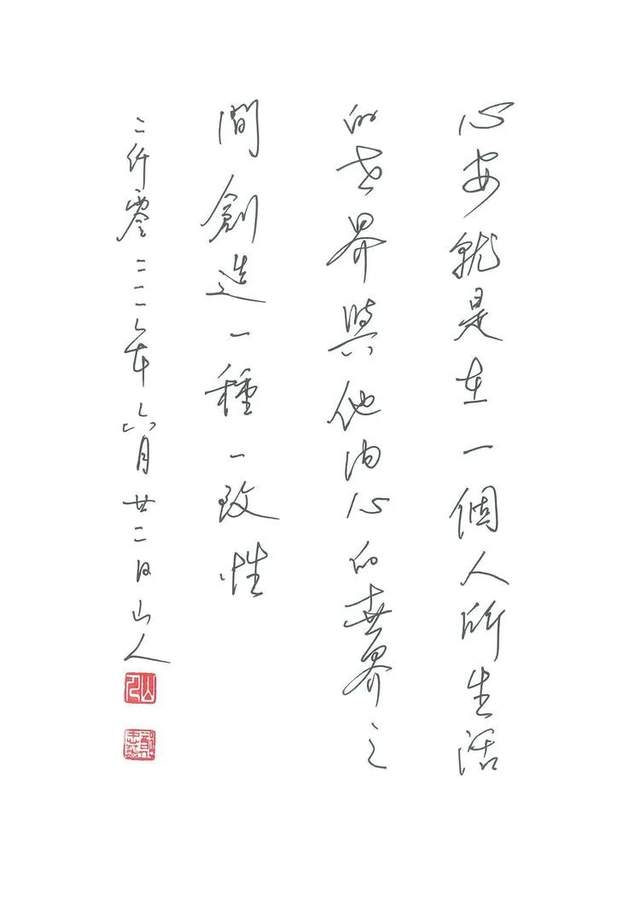 心安就是在一個人所生活
的世界與他內心的世界之
間創造一種一致性
二仟零二二年六月廿二日山人
山人